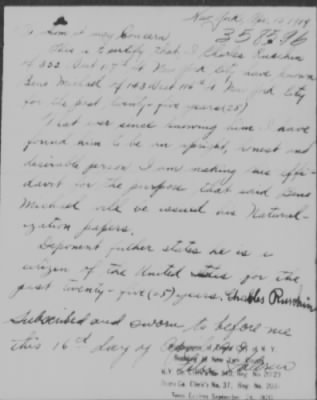 New York, Apr. 16 1919
358596
To whom it may Concern
This is to certify that I Charles Rushkin
of 522 East 117th St New York City have known
Michael of 163 East 116th St New York City
for the past twenty-five years (25)
That ever since knowing him I have
found him to be an upright, honest and
desirable person I am making this affi-
davit for the purpose that said
Michael will be issued his Natural-
ization papers.
Deponent further states he is a
citizen of the United States for the
past twenty-five (25) years. Charles Rushkin
Subscribed and sworn to before me
this 16th day of
N.Y.
N.Y. Co. Clerk's No. Reg. No.
Clerk's No. 37, Reg. No.